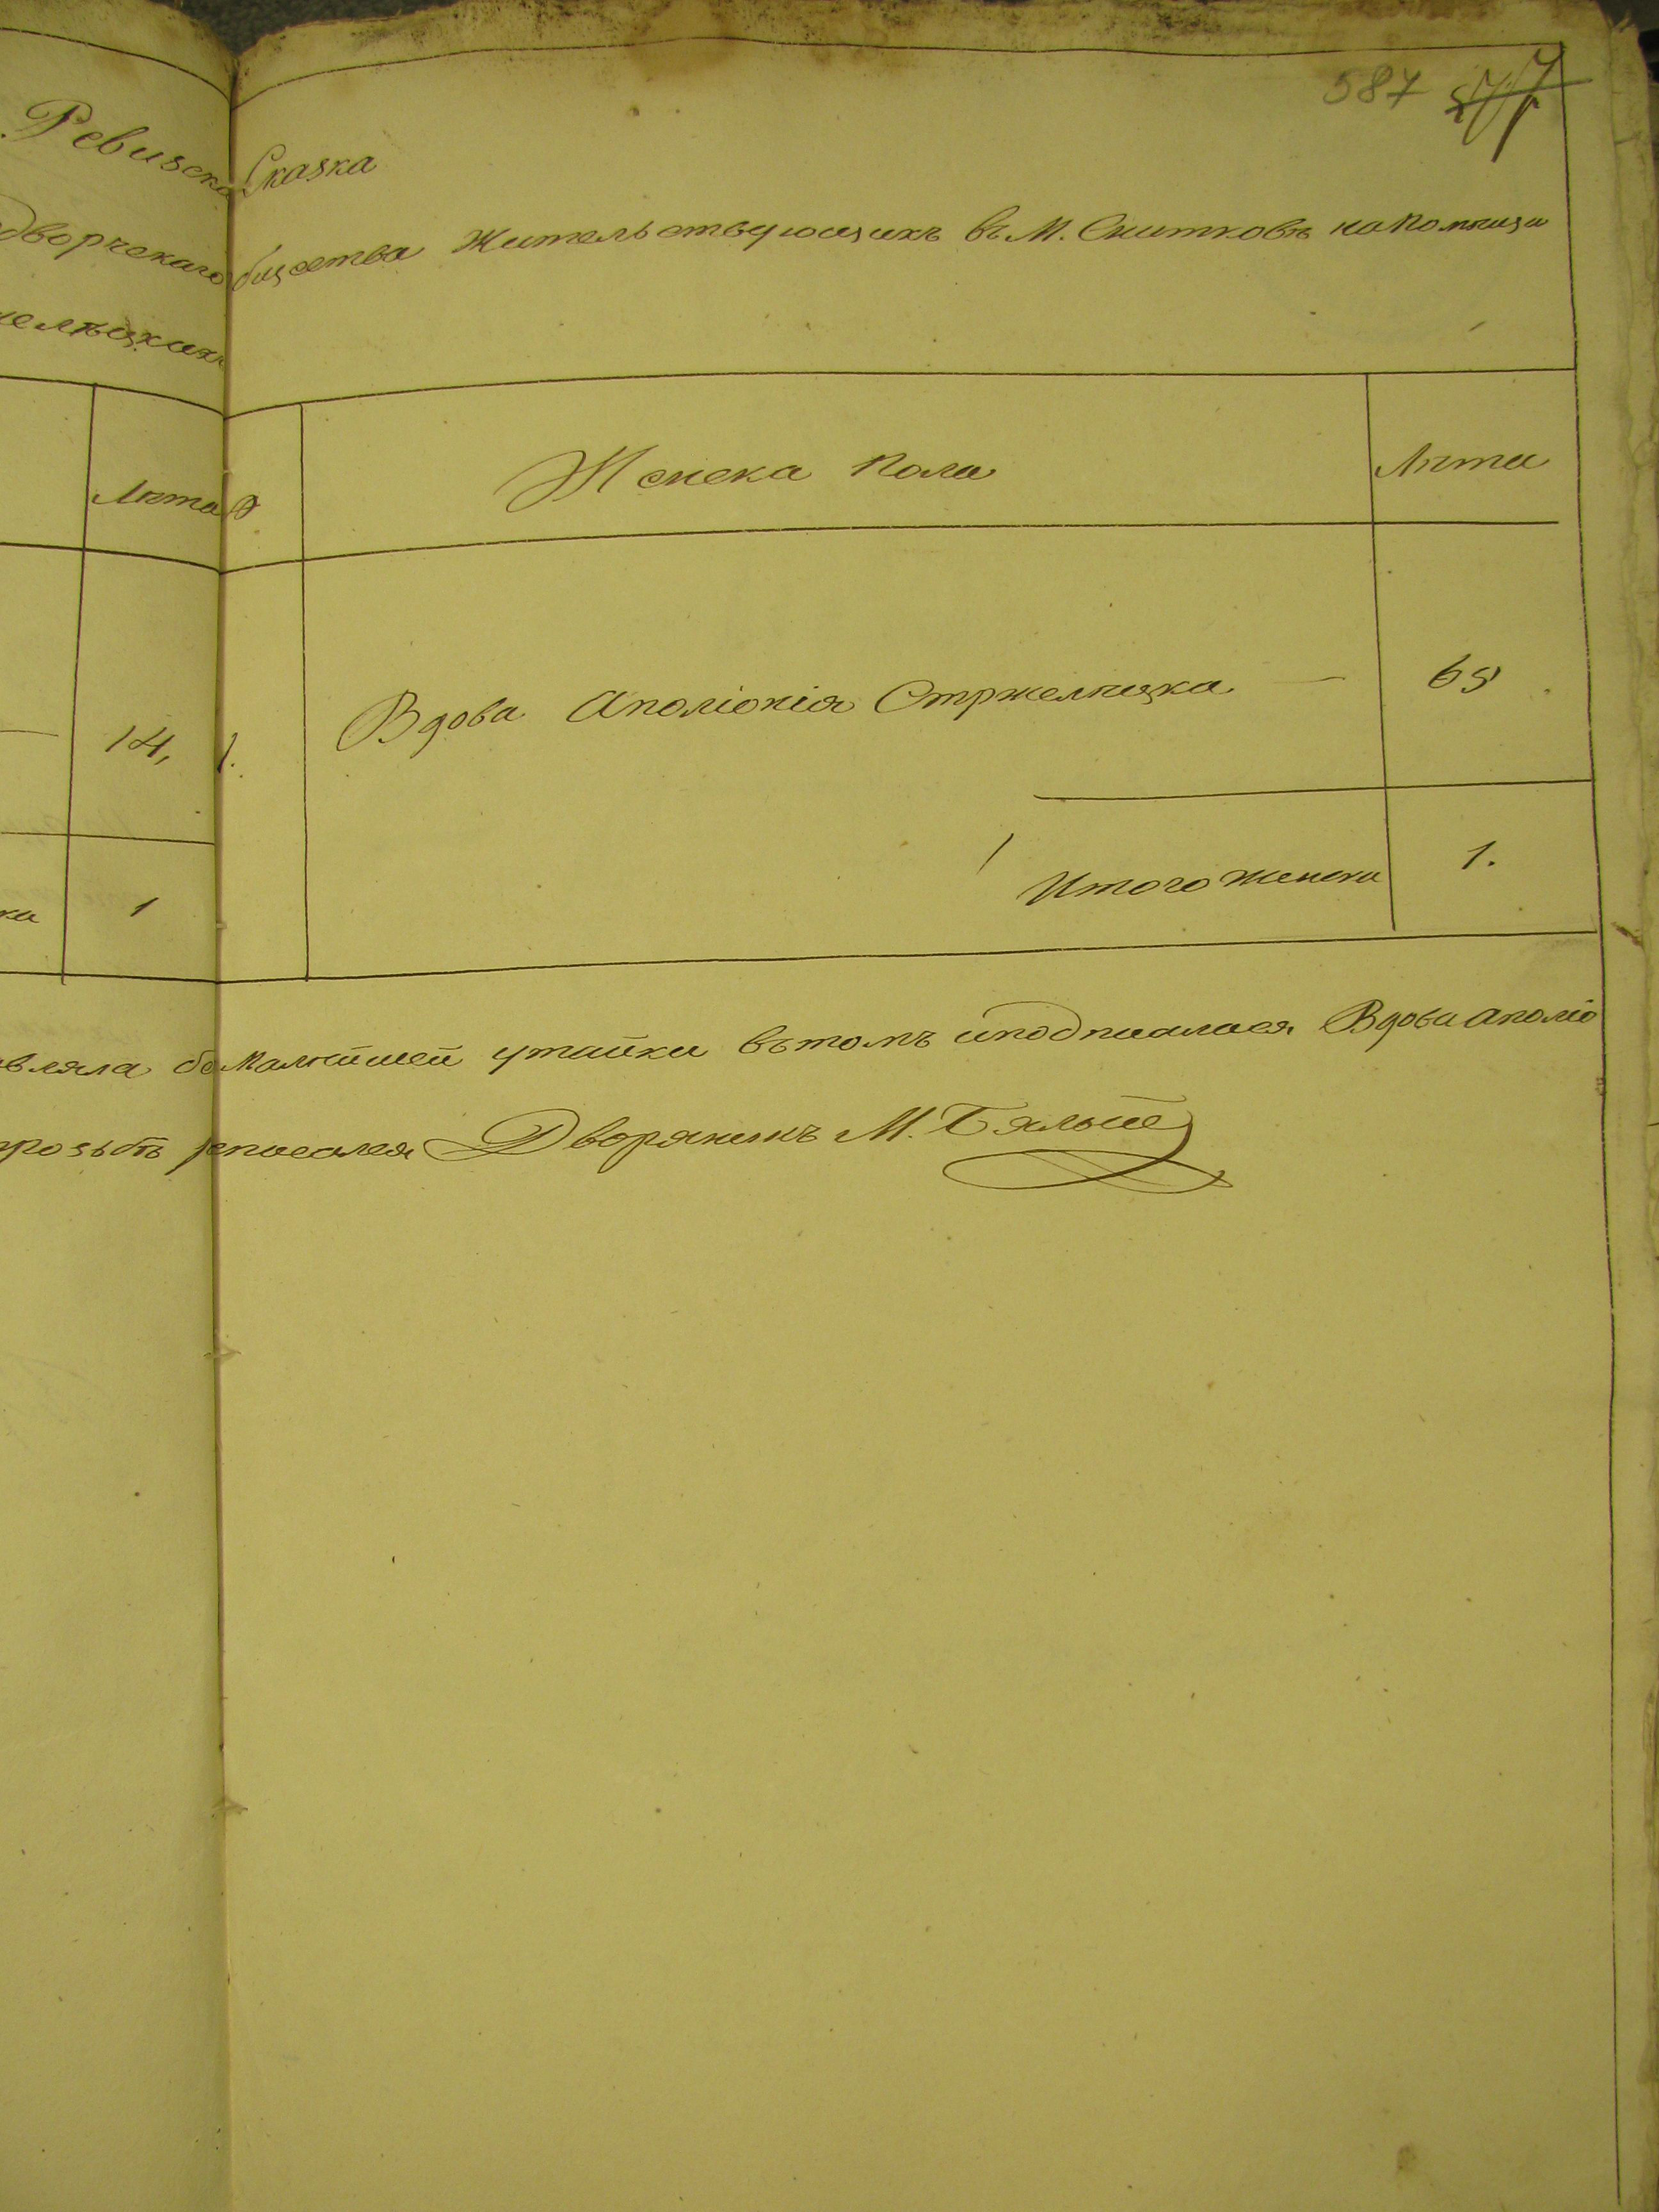 587
Ревизска Сказка
дворческаго бщества Жительствующихъ въ М. Снитковѣ на Помѣщи
елѣцкихъ
Лѣта Женска Пола Лѣта
14, 1. Вдова Аполіонія Стржелѣцка — 69
ка 1 Итого женска 1.
вляла бе Малѣйшей утайки вътомъ иподписалася Вдова Аполіо
прозьбѣ рписался Дворянинъ М. Бялые